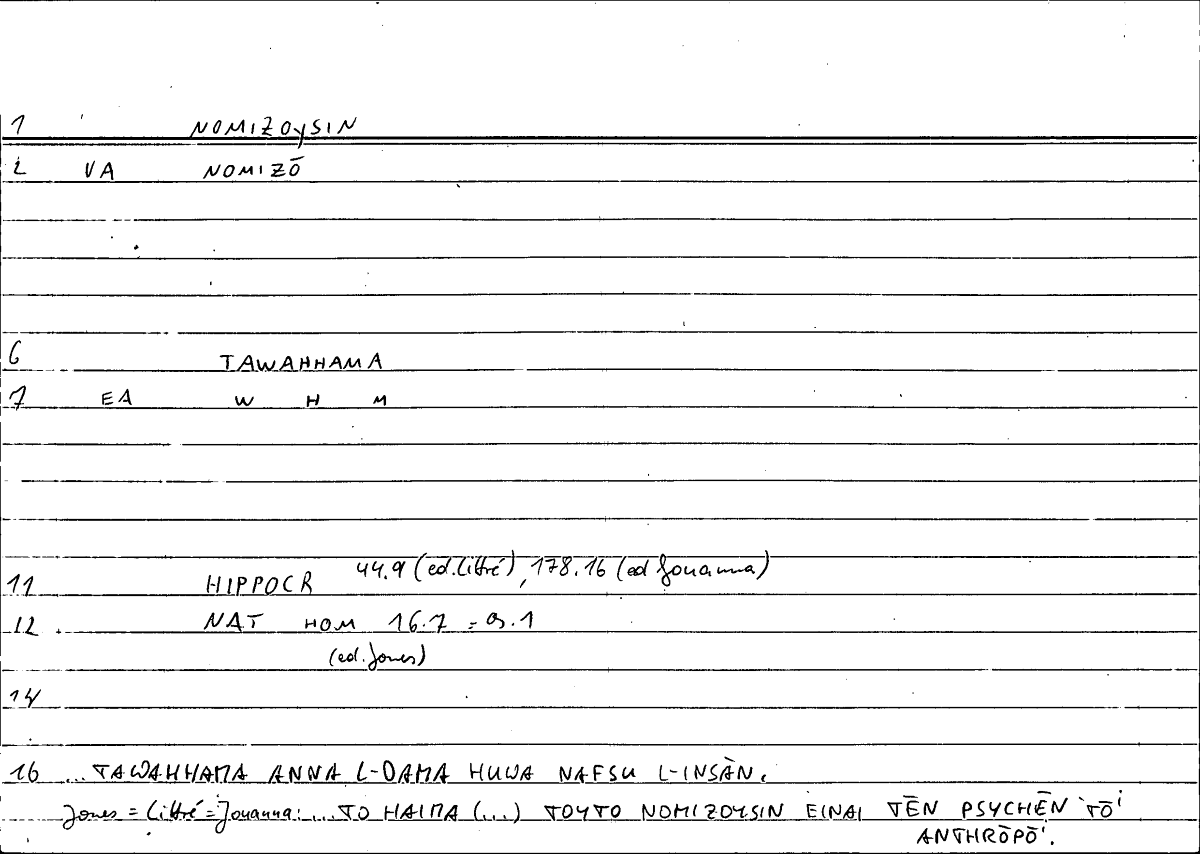 1 NOMIZOYSIN
2 VA NOMIZŌ
6 TAWAHHAMA
7 EA W H M
11 HIPPOCR 44.9 (ed. Littré), 178.16 (ed Jouanna)
12 NAT HOM 16.7 = 9.1
(ed. Jones)
14
16 ... TAWAHHAMA ANNA L-DAMA HUWA NAFSU L-INSĀN.
Jones = Littré = Jouanna: ... TO HAIMA (...) TOYTO NOMIZOYSIN EINAI TĒN PSYCHĒN TŌ'
ANTHRŌPŌ'.